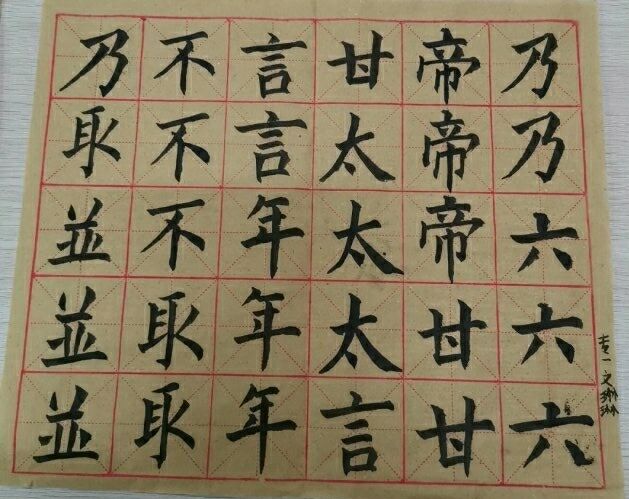 乃乃六六六
帝帝帝甘甘
甘太太太言
言言年年年
不不不耴耴
乃耴並並並
一 文琳